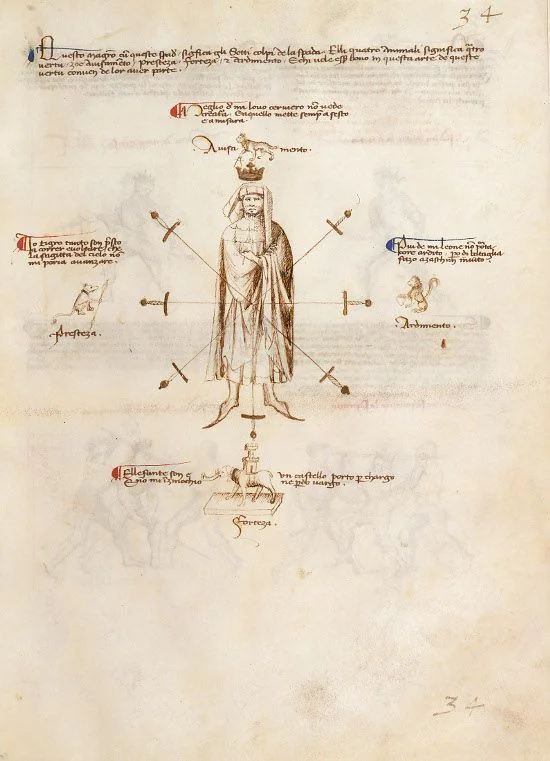 34
Questo magrõ cū queste spad' signifca gli Setti colpi de la spada. Elli quatro animali significa q̃tro
vertu, zoe avisamēto, Presteza, Forteza, & Ardimento. E chi vole ess̃ bono in questa arte de queste
vertu conven de lor aver parte.
Meglio d' mi lovo cerviero nō vede
creat̃a. E aquello mette semp̃ a sesto
e a misura.
Avisa mento.
Io tigro tanto son p̃sto
a correr e voltare, che
la sagitta del cielo nō
mi poria avanzare.
Presteza.
Piu de mi leone nō porta
core ardito, po di bataglia
fazo a zaschun invito.
Ardimento.
Ellefante son e un castello porto p chargo
E nō mi inzinochio ne pdo vargo.
Forteza.
34